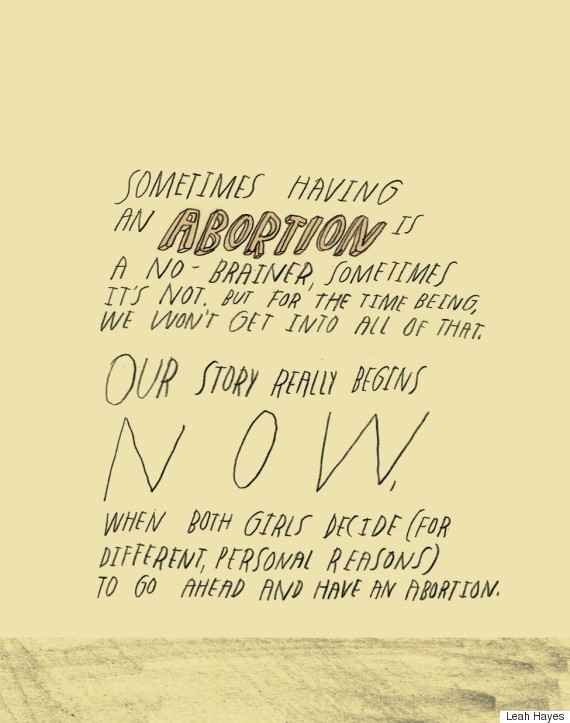 SOMETIMES HAVING
AN ABORTION IS
A NO-BRAINER, SOMETIMES
IT'S NOT. BUT FOR THE TIME BEING,
WE WON'T GET INTO ALL OF THAT.
OUR STORY REALLY BEGINS
NOW,
WHEN BOTH GIRLS DECIDE (FOR
DIFFERENT, PERSONAL REASONS)
TO GO AHEAD AND HAVE AN ABORTION.
Leah Hayes